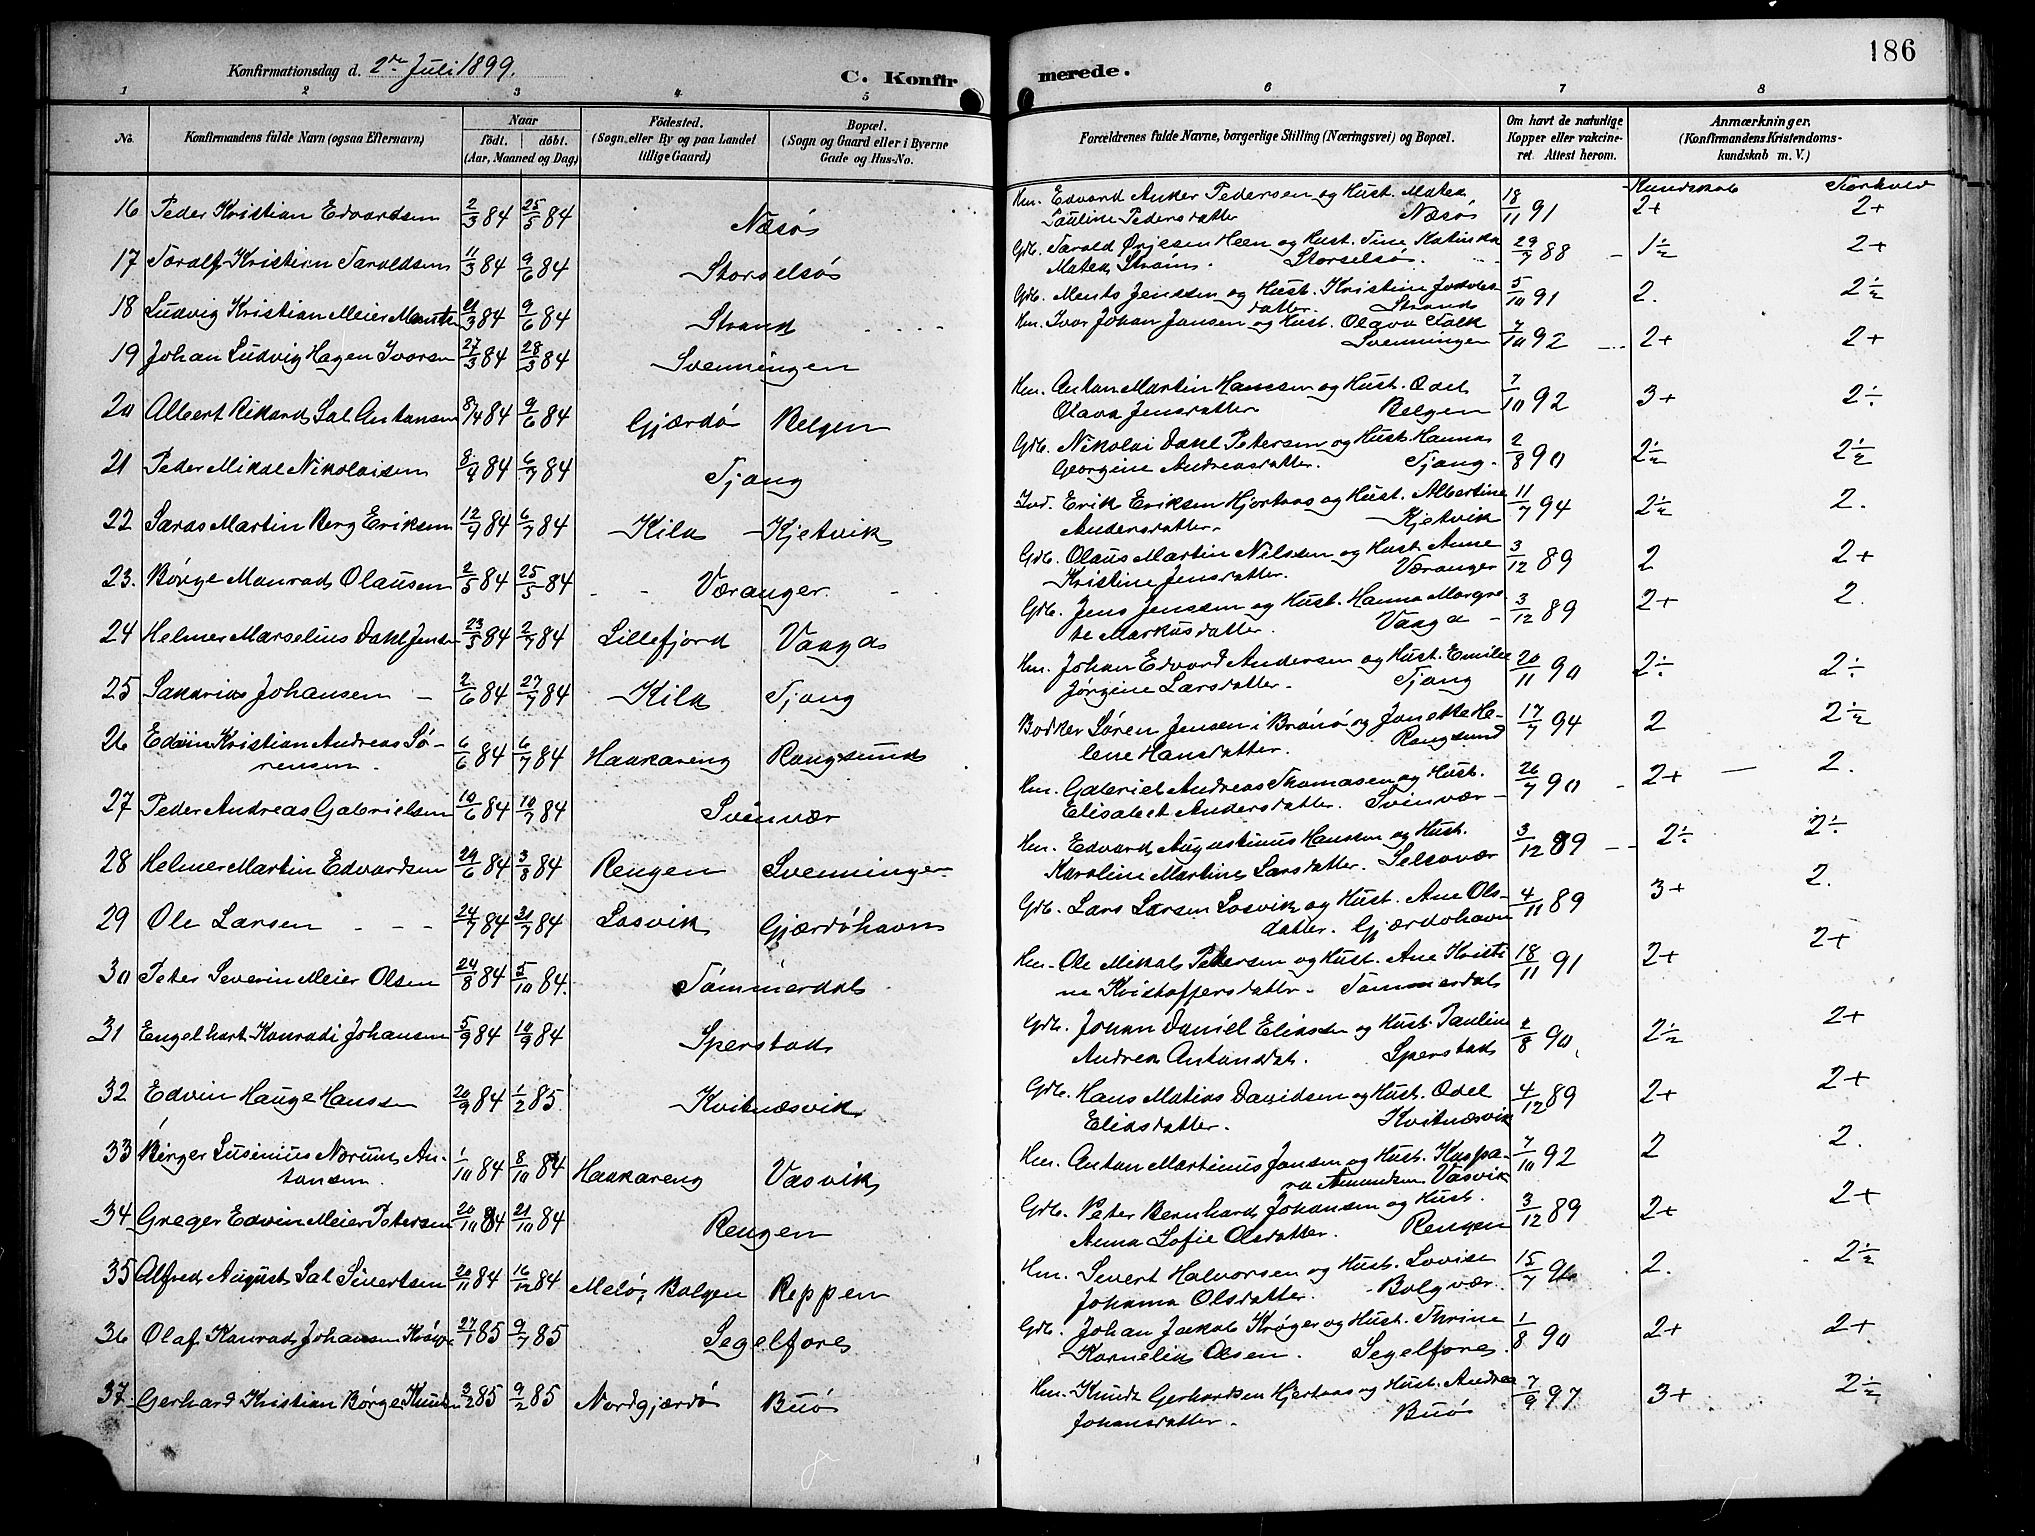 186
Konfirmationsdag d. 2den Juli 1899.
C. Konfirmerede.
1 2 3 4 5 6 7 8
No. Konfirmandens fulde Navn (ogsaa Efternavn) Naar født. døbt. (Aar, Maaned og Dag) Fødested. (Sogn eller By og paa Landet tillige Gaard) Bopæl. (Sogn og Gaard eller i Byerne Gade og Hus-No. Forældrenes fulde Navne, borgerlige Stilling (Næringsvei) og Bopæl. Om havt de naturlige Kopper eller vakcineret. Attest herom. Anmærkninger. (Konfirmandens Kristendomskundskab m. V.)
Kundskab Forhold
16 Peder Kristian Edvardsen 2/3 84 25/5 84 Næsø Hm. Edvard Anker Pedersen og Hust. Matea
Pauline Pedersdatter Næsø 18/11 91 2+ 2+
17 Toralf Kristian Taroldsen 11/3 84 9/6 84 Storselsø Gdb. Tarold Ørjesen Heen og Hust. Tine Katinka
Matea Strøm. Storselsø. 29/7 88 1½ 2+
18 Ludvig Kristian Meier Mentsen 21/3 84 9/6 84 Strand Gdb. Ments Jenssen og Hust. Kristine
datter Strand 5/10 91 2. 2½
19 Johan Ludvig Hagen Ivarsen 27/3 84 28/3 84 Svenningen Hm. Ivar Johan Jansen og Hust. Olava Falk
Svenningen 7/10 92 2+ 2+
20 Albert Rikard Sal. Antonsen 8/4 84 9/6 84 Gjærdø Bolgen Hm. Anton Martin Hansen og Hust. Odel
Olava Jensdatter Bolgen 7/10 92 3+ 2÷
21 Peder Mikal Nikolaisen 8/4 84 6/7 84 Tjong Gdb. Nikolai Dahl Petersen og Hust. Hanna
Georgine Andreasdatter. Tjong. 2/8 90 2½ 2½
22 Saras Martin Berg Eriksen 12/4 84 6/7 84 Kila Kjetvik Ind. Erik Eriksen Hjortaas og Hust. Albertine
Andersdatter. Kjetvik 11/7 94 2½ 2.
23. Børge Monrad Olausen 2/5 84 25/5 84 Væranger. Gdb. Olaus Martin Nilsen og Hust. Anne
Kristine Jensdatter. Væranger 3/12 89 2 2+
24 Helmer Marselius Dahl Jensen 23/5 84 2/7 84 Lillefjord Vaaga Gdb. Jens Jenssen og Hust. Hanna Margre-
te Markusdatter. Vaaga 3/12 89 2+ 2.
25 Sakarias Johansen 2/6 84 27/7 84 Kila Tjong Hm. Johan Edvard Andersen og Hust. Emilie
Jørgine Larsdatter. Tjong 20/11 90 2÷ 2÷
26 Edvin Kristian Andreas Sø-
rensen. 6/6 84 6/7 84 Haakareng Rangsund Bødker Søren Jensen i Brønø og Jonette He-
lene Hansdatter. Rangsund 17/7 94 2 2½
27 Peder Andreas Gabrielsen 10/6 84 10/7 84 Svinvær Hm. Gabriel Andreas Thomasen og Hust.
Elisabet Andersdatter. Svinvær 26/7 90 2+ 2.
28 Helmer Martin Edvardsen 29/6 84 3/8 84 Rengen Svenningen Hm. Edvard Augustinus Hansen og Hust.
Karoline Martine Larsdatter. Selsøvær 3/12 89 2÷ 2÷
29 Ole Larsen 24/7 84 31/7 84 Sosvik Gjærdøhavn Gdb. Lars Larsen Sosvik og Hust. Ane Ols-
datter. Gjærdøhavn 4/11 89 3+ 2.
30 Peter Severin Meier Olsen 24/8 84 5/10 84. Tømmerdal Hm. Ole Mikal Pedersen og Hust. Ane Kristi
ne Kristoffersdatter. Tømmerdal 18/11 91 2+ 2+
31 Engelhart Konradi Johansen 5/9 84 10/9 84 Sperstad Gdb. Johan Daniel Eliassen og Hust. Pauline
Andrea Antonsdat. Sperstad 2/8 90 2½ 2+
32 Edvin Hauge Hanssen 20/9 84 1/2 85. Kvitnæsvik Gdb. Hans Matias Davidsen og Hust. Odel
Eliasdatter. Kvitnæsvik 4/12 89 2+ 2+
33 Birger Lusinius Nærum An-
tonsen. 1/10 84 8/10 84 Haakareng Vasvik Hm. Anton Martinus Jansen og Hust. Kaspa-
ra Amundsen Vasvik 7/10 92 2 2.
34 Greger Edvin Meier Petersen 20/10 84 21/10 84 Rengen Gdb. Peter Bernhard Johansen og Hust.
Anna Sofie Olsdatter. Rengen 3/12 89 2+ 2+
35 Alfred August Sal. Sivertsen 20/11 84 16/12 84 Melø, Bolgen Reppen Hm. Severt Halvorsen og Hust. Lovise
Johanna Olsdatter. Bolgvær. 15/7 96 2. 2½
36 Olaf Konrad Johansen Krøger 27/1 85 9/7 85 Segelfore Gdb. Johan Jakob Krøger og Hust. Thrine
Kornelia Olsen. Segelfore. 1/8 90 2+ 2+
37. Gerhard Kristian Børge Knudsen 3/2 85 9/2 85 Nordgjærdø Buø Hm. Knudt Gerhardsen Hjertaas og Hust. Andrea
Johansdatter. Buø 7/9 97 3+ 2½